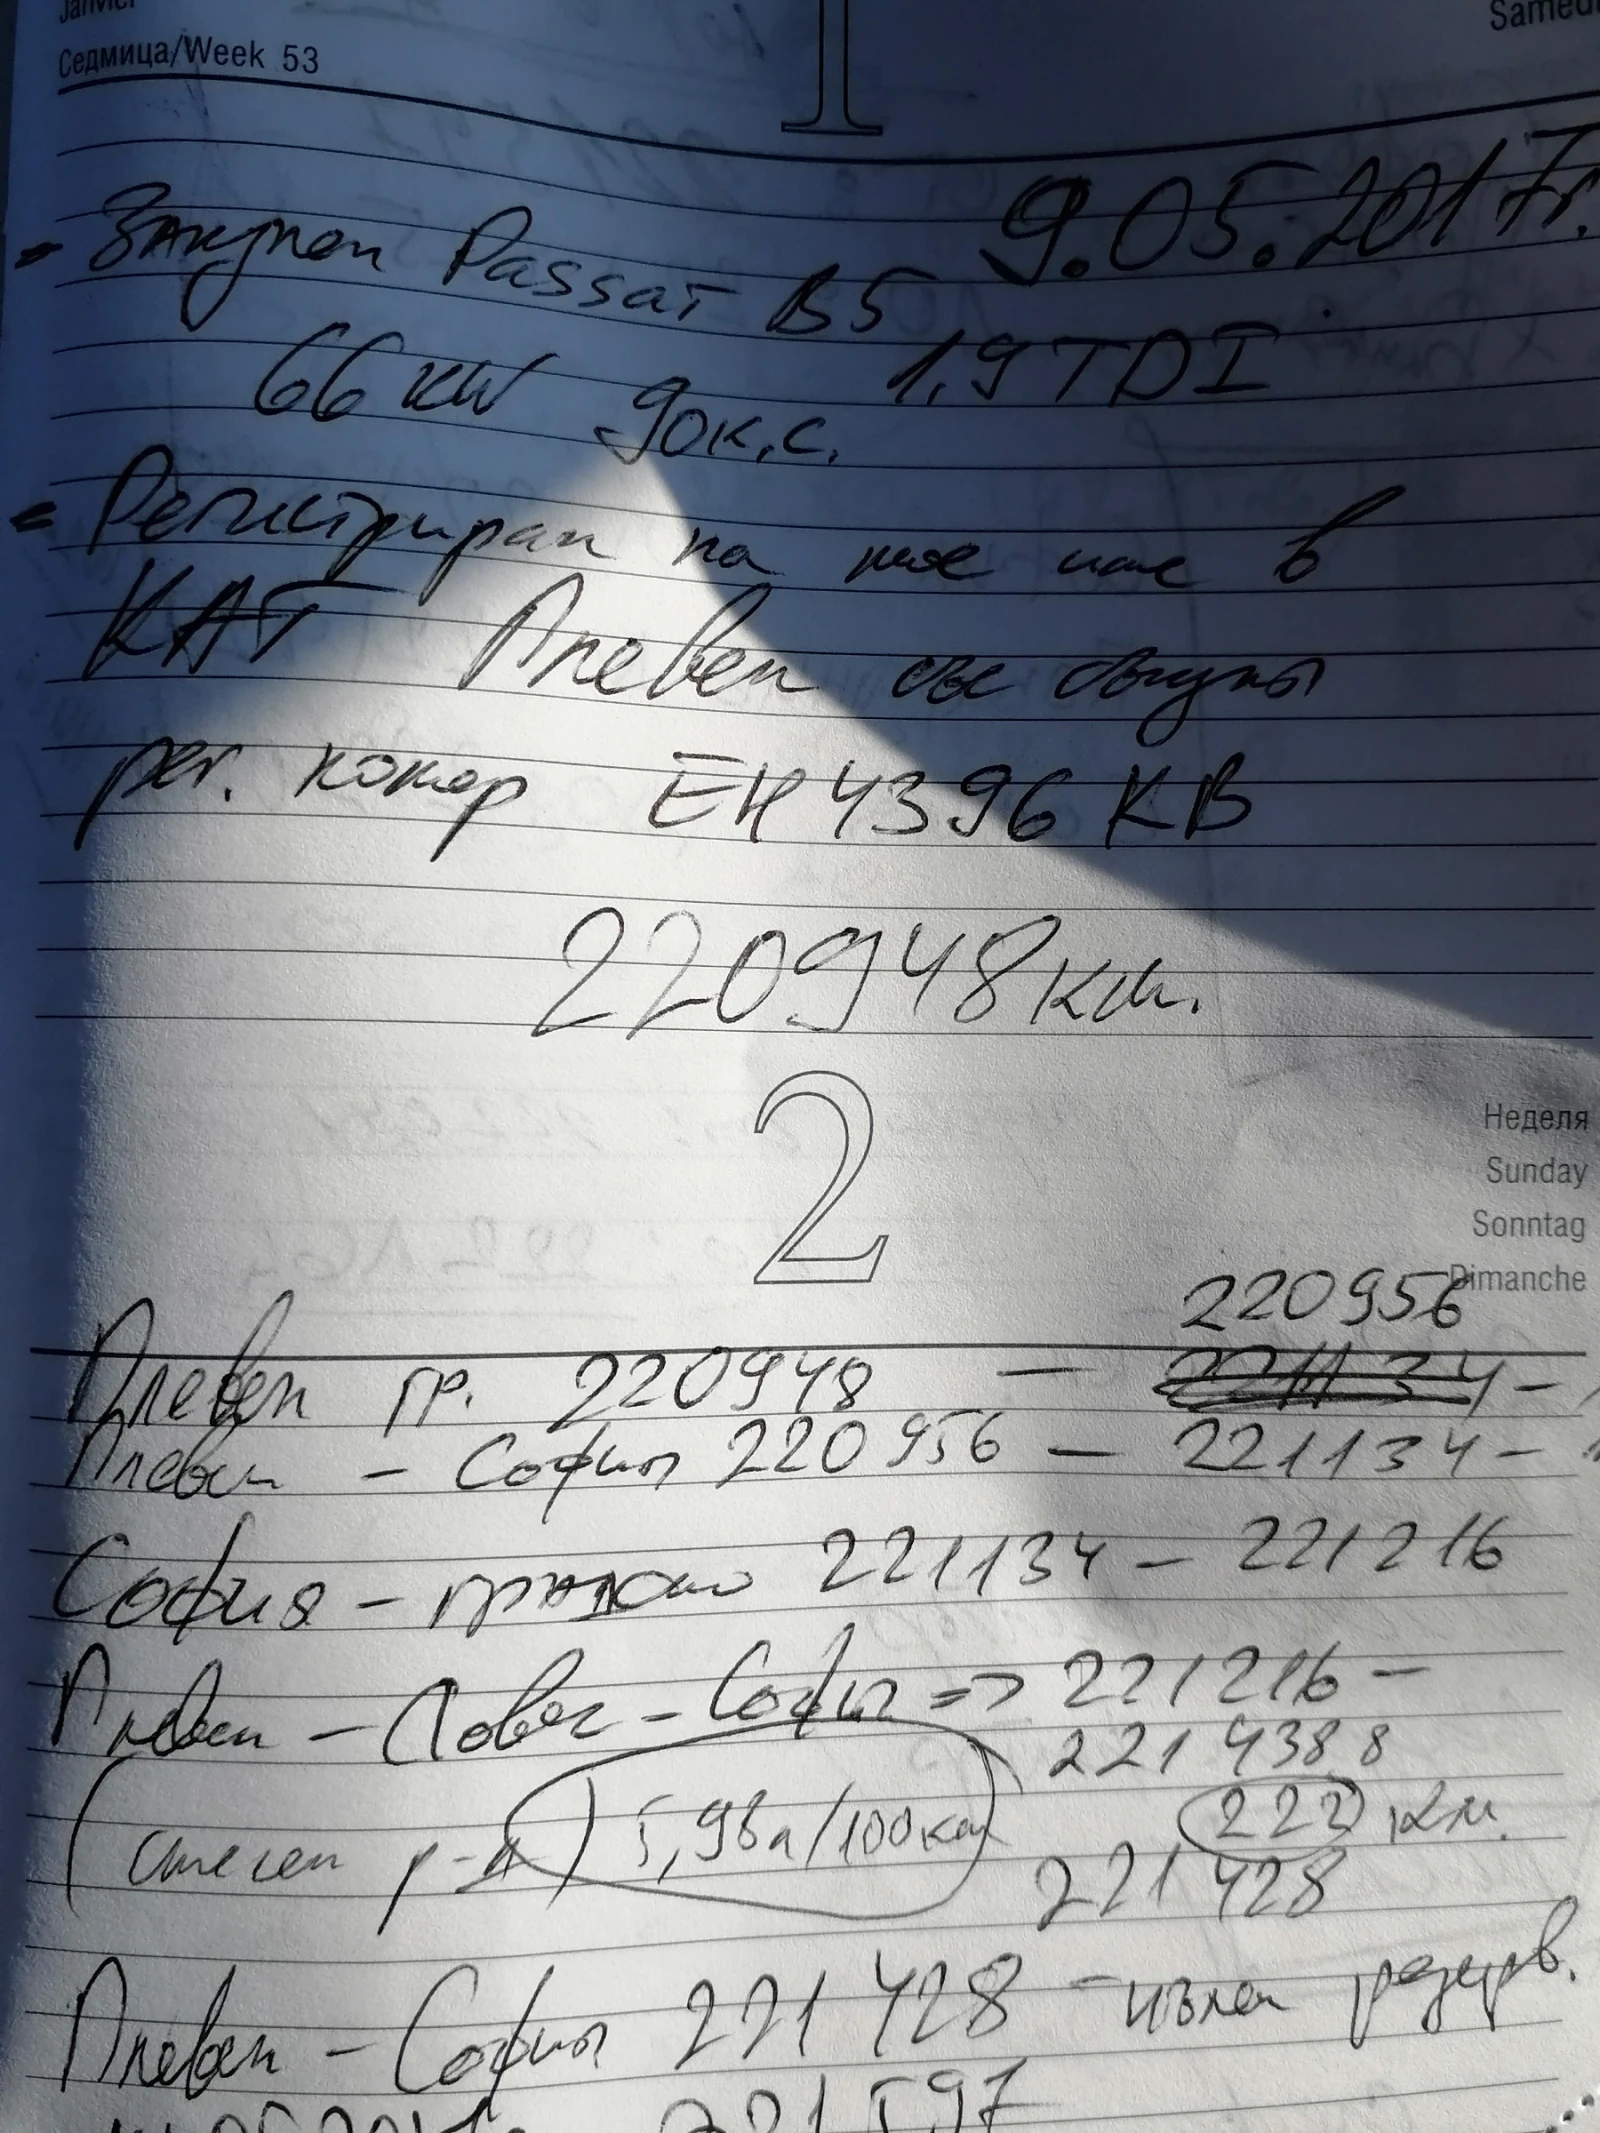 Седмица/Week 53
1
9.05.2017г.
- Закупен Passat B5
1,9 TDI
66 KW 90к.с.
- Регистриран на мое име в
КАТ Плевен със същия
рег. номер ЕН 4396 КВ
220948км.
2
Неделя
Sunday
Sonntag
Dimanche
220956
Плевен гр. 220948 —
Плевен - София 220956 — 221134 -
София - градско 221134 - 221216
Плевен - Ловеч - София => 221216 -
221438
(смесен р-д) 5,98л/100км
222 км.
221428
Плевен - София 221428 - пълен резерв.
221597